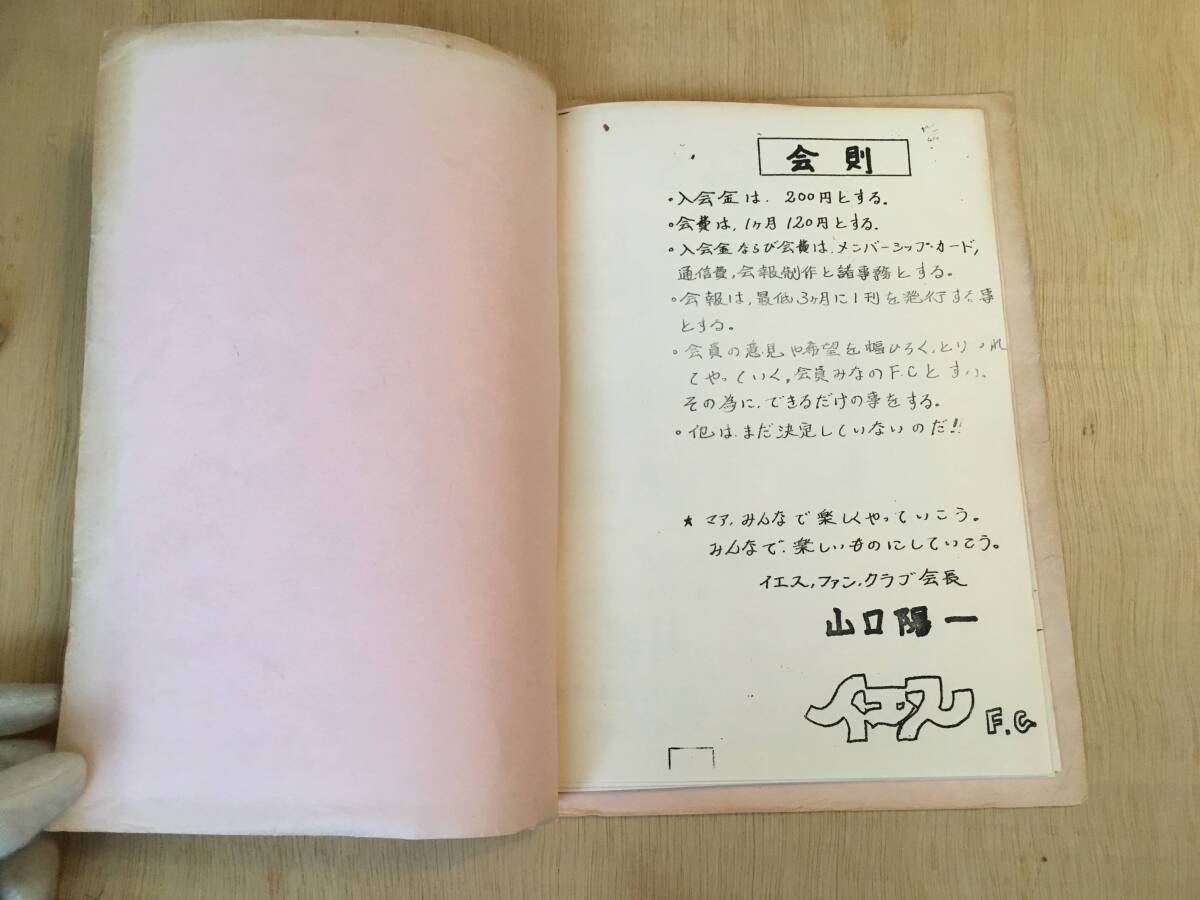 会則
・入会金は、200円とする。
・会費は、1ヶ月120円とする。
・入会金ならび会費は、メンバーシップ・カード,
通信費,会報制作と諸事務とする。
・会報は,最低3ヶ月に1刊を発行する事
とする。
・会員の意見や希望を幅ひろく,とり れ
てやっていく。会員みなのF.Cと
その為に、できるだけの事をする。
・他は、まだ決定していないのだ!!
★ マア,みんなで楽しくやっていこう。
みんなで、楽しいものにしていこう。
イエス,ファン,クラブ会長
山口陽一
イエス F.C